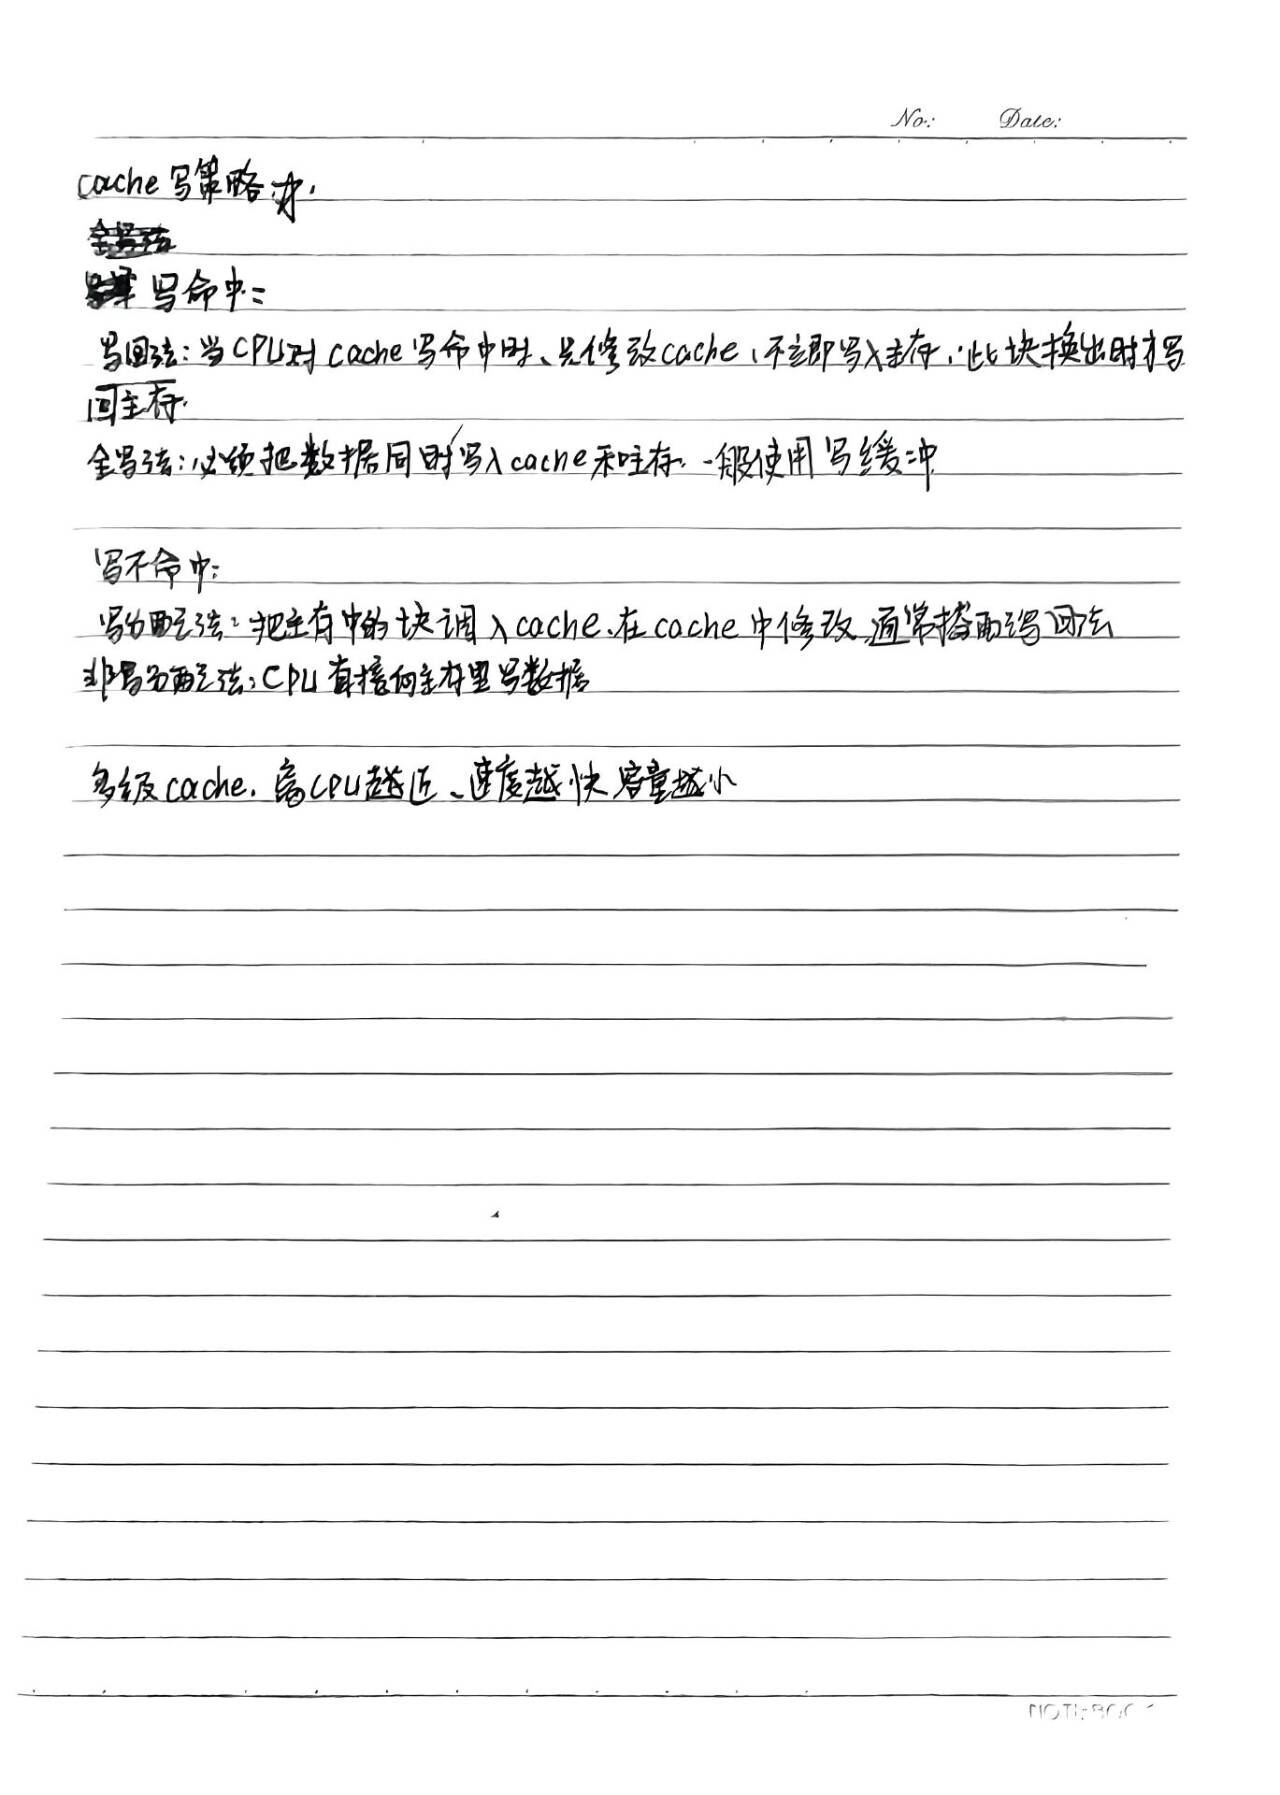 No: Date:
cache写策略
写命中:
写回法:当CPU对cache写命中时、只修改cache,不立即写入主存,此块换出时才写
回主存.
全写法:必须把数据同时写入cache和主存.一般使用写缓冲
写不命中:
写分配法:把主存中的块调入cache、在cache中修改,通常搭配写回法
非写分配法:CPU直接向主存里写数据
多级cache.离CPU越近、速度越快容量越小